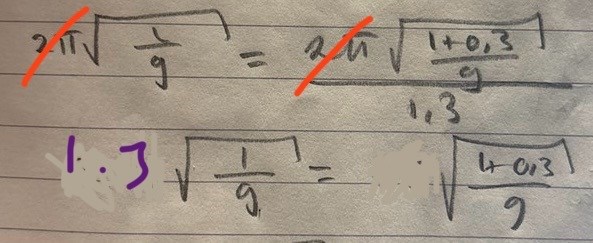 2π√(1/g) = 2π√((1+0,3)/g) / 1,3
1.3 √(1/g) = √((1+0,3)/g)